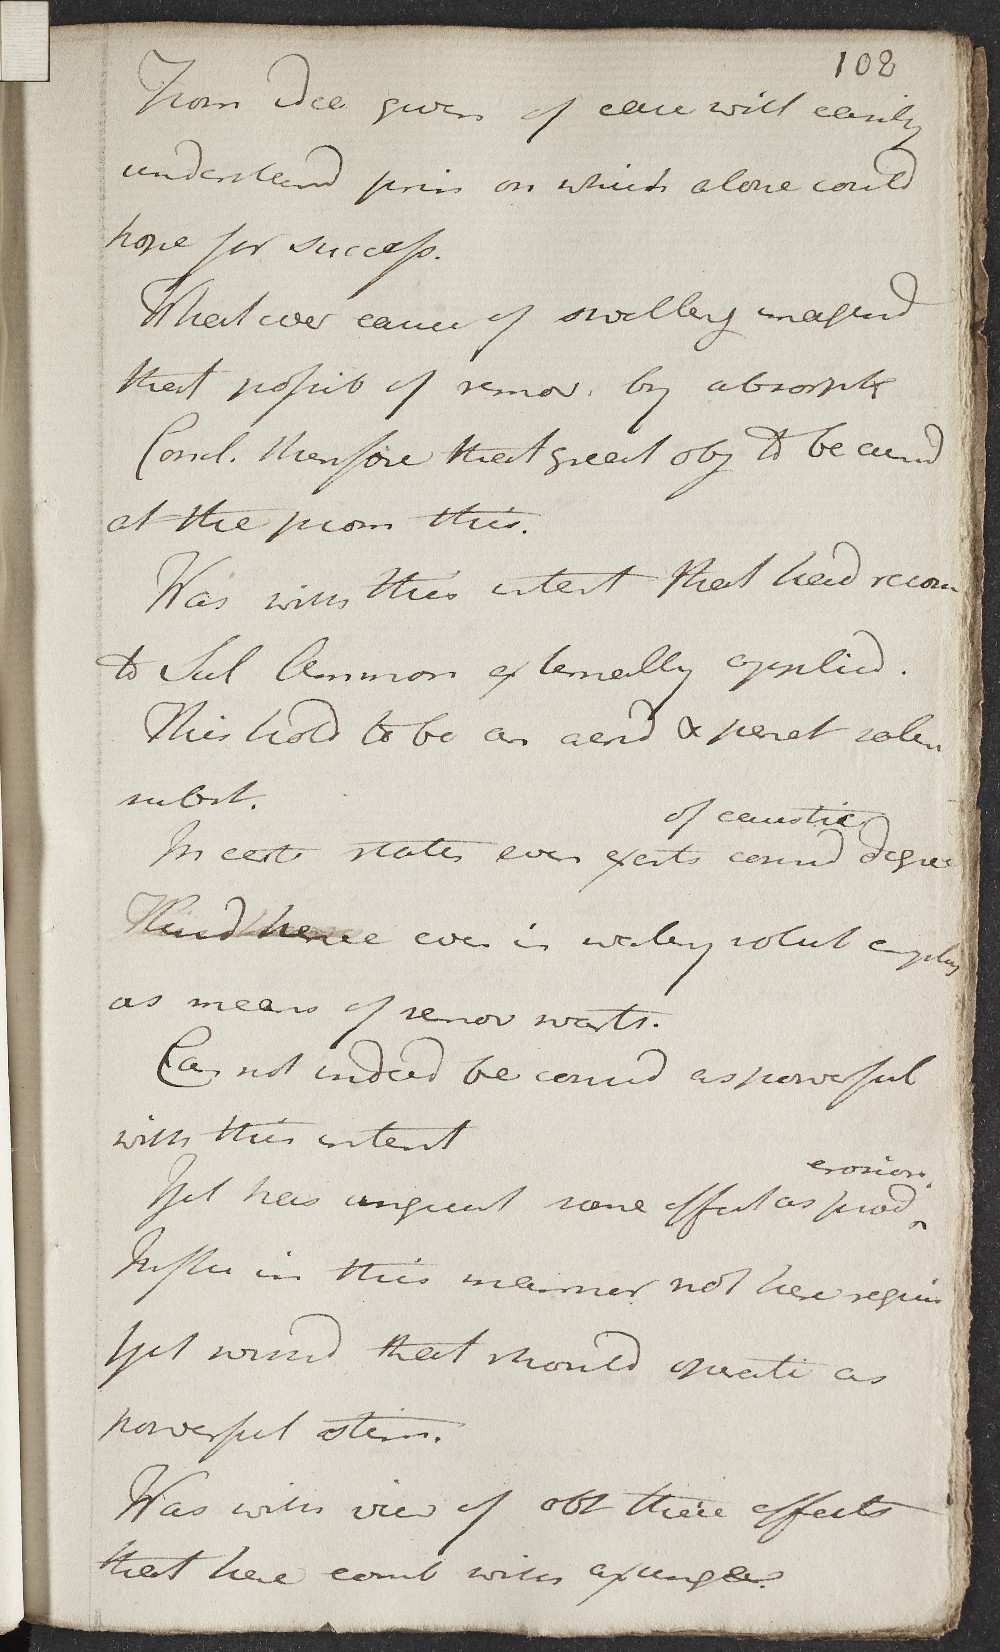 108
From idea given of case will easily
understand prin on which alone could
hope for success.
Whatever cause of swelling imagind
that possib of remov. by absorpt
Concl. therefore that great obj to be aimd
at the prom this.
Was with this intent that had recom
to Sal Ammon externally applied.
This hold to be an acrid & penet salin
subst.
In cert states even exerts consid degree
of caustic
And hence even in watery solut employ
as means of remov warts.
Can not indeed be considd as powerful
with this intent
Yet has unguent some effect as prod
erosion.
Influ in this manner not here requir
Yet wishd that should operate as
powerful stim.
Was with view of obt these effects
that here comb with axunge